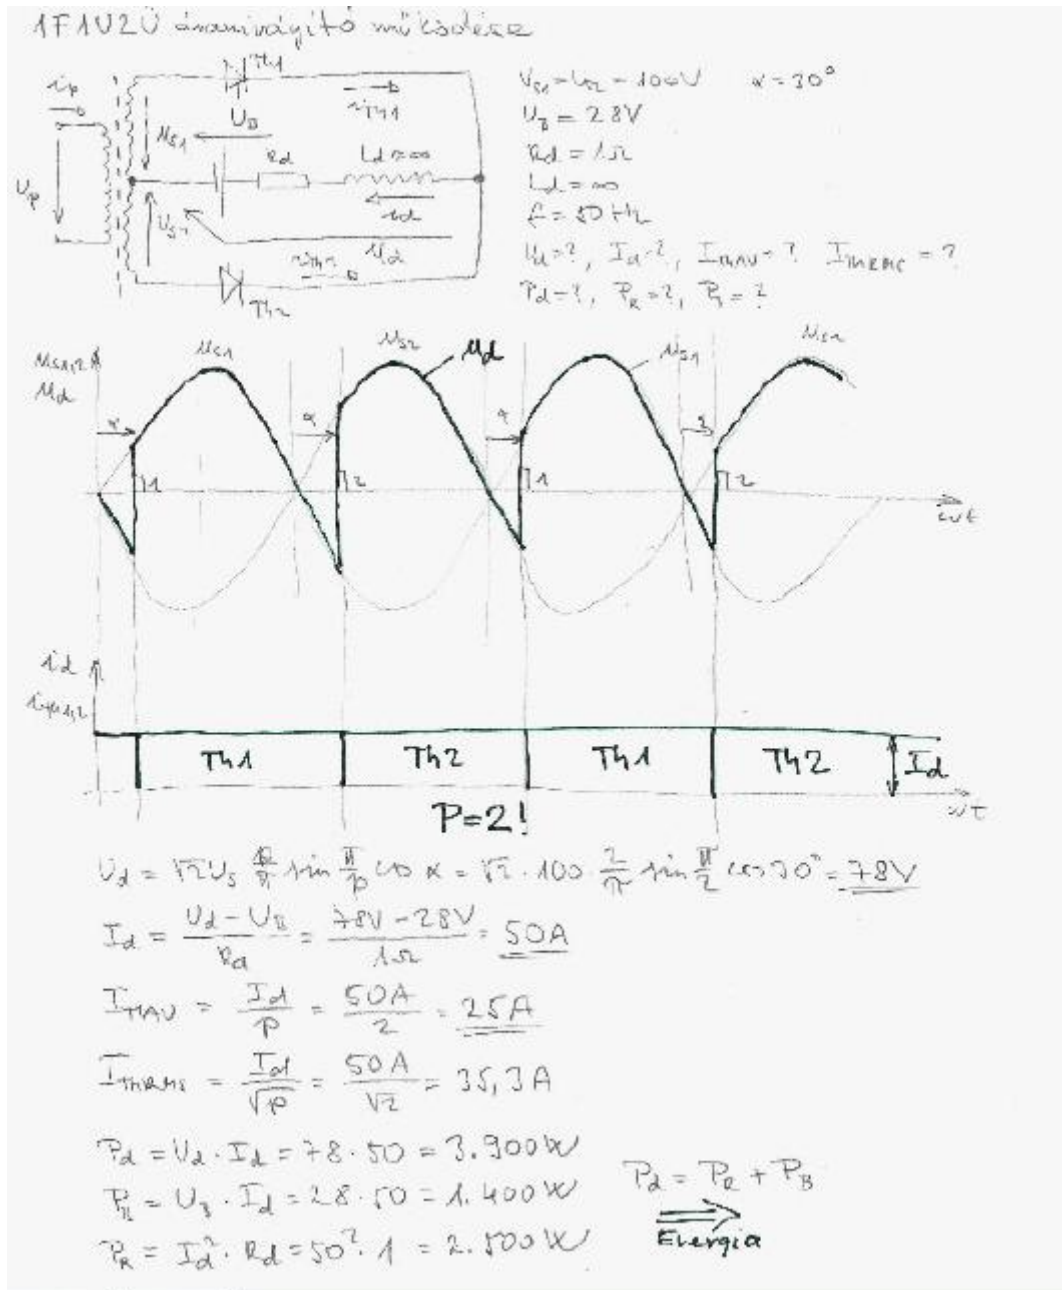 1F1U2Ü áramirányító működése
Th1
ip
iTh1
UB
us1
Rd
Ld=∞
Up
id
us2
ud
iTh2
Th2
Us1=Us2=100V α=30°
UB = 28V
Rd = 1Ω
Ld = ∞
f = 50Hz
Ud=?, Id=?, IThAV=? IThRMS = ?
Pd=?, PR=?, PB=?
us1,2
ud
us1
us2
ud
us1
us2
α
α
α
α
1
2
1
2
ωt
id
iTh1,2
Th1
Th2
Th1
Th2
Id
ωt
P=2!
Ud = √2Us p/π sin π/p cos α = √2 · 100 · 2/π sin π/2 cos 30° = 78V
Id = (Ud - UB)/Rd = (78V - 28V)/1Ω = 50A
IThAV = Id/p = 50A/2 = 25A
IThRMS = Id/√p = 50A/√2 = 35,3A
Pd = Ud · Id = 78 · 50 = 3.900W
PB = UB · Id = 28 · 50 = 1.400W
PR = Id² · Rd = 50² · 1 = 2.500W
Pd = PR + PB
Energia